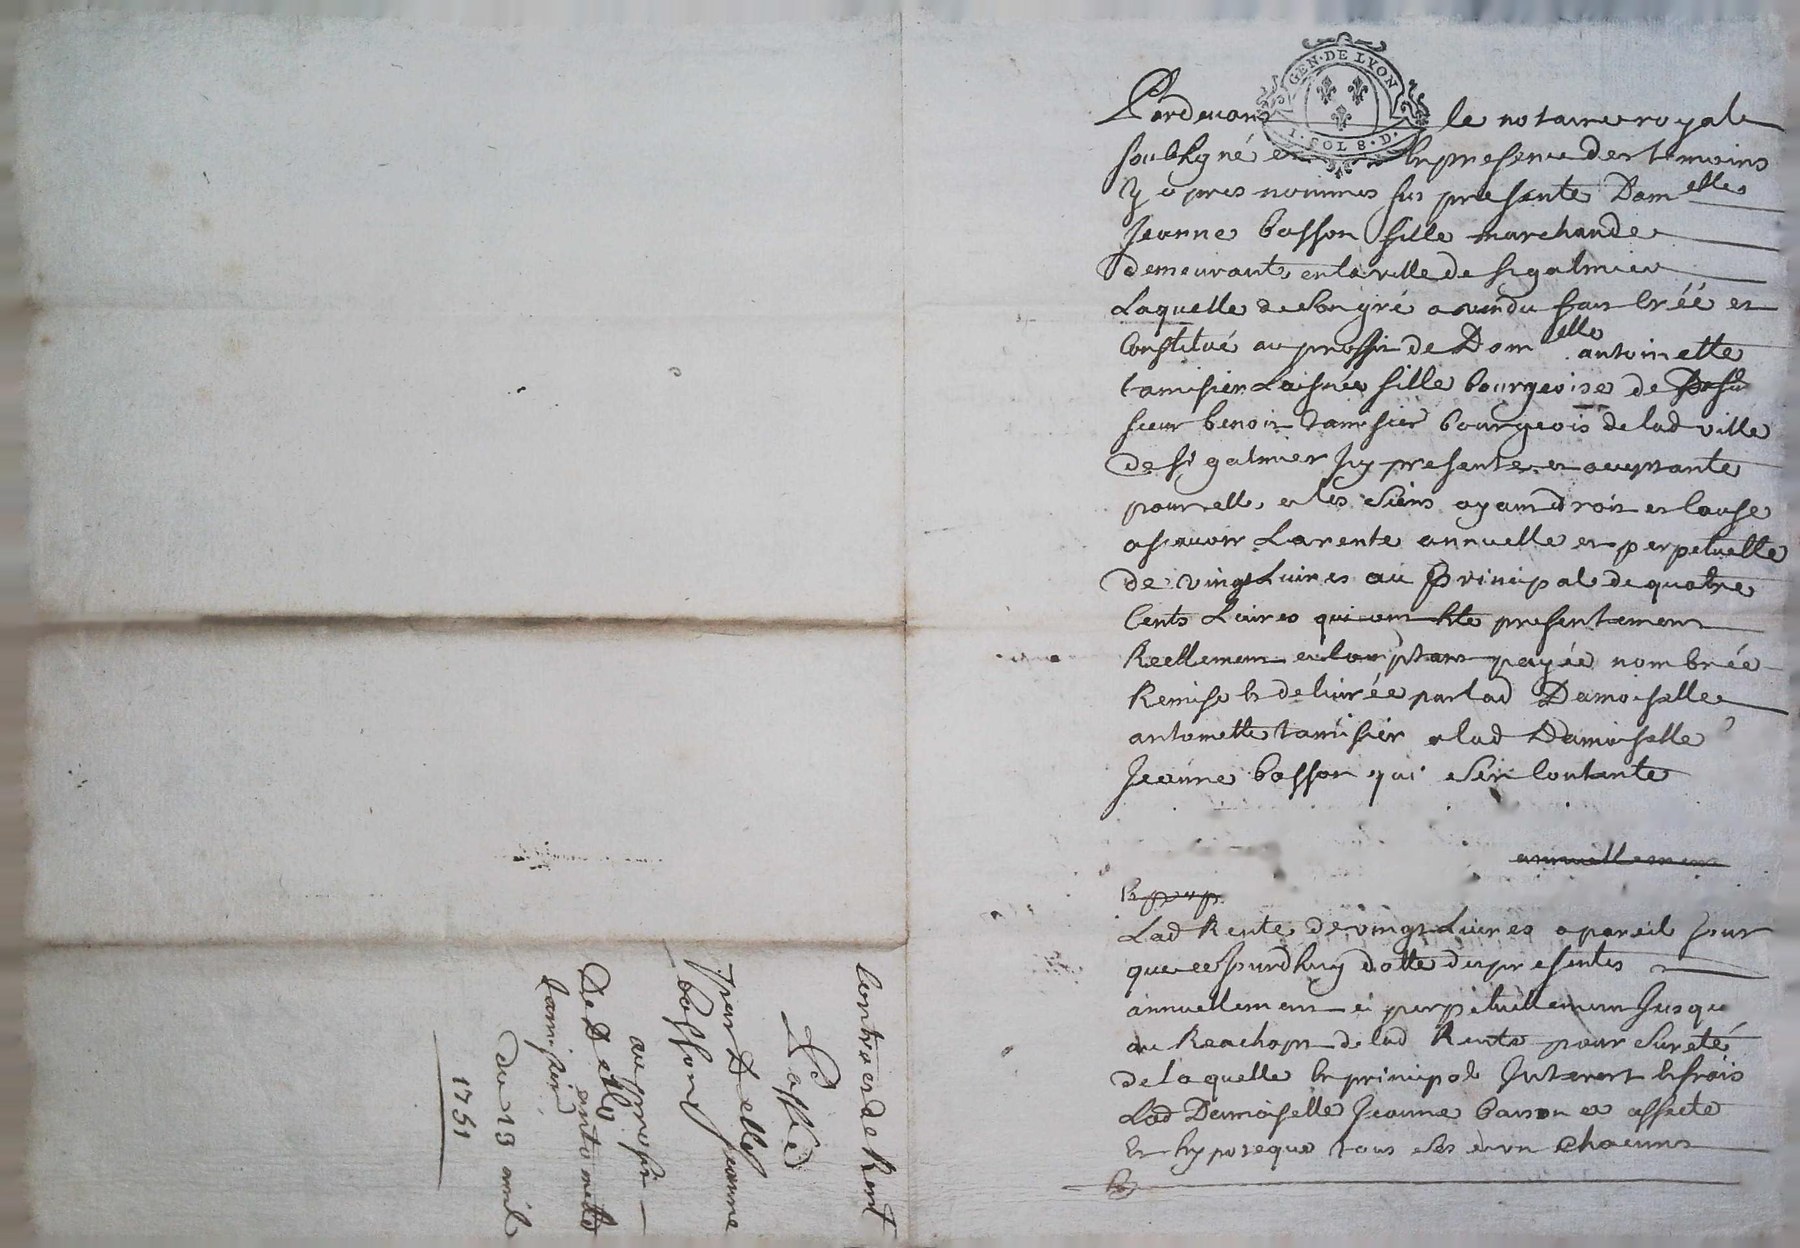 GEN. DE LYON
I. SOL 8. D.
Pardevant le notaire royale
soubsigné et en presence des temoins
Y apres nommes fus presente Damelles
Jeanne basson fille marchande
demeurante en la ville de st galmier
Laquelle de son gré a vendu fait créé et
Constitué au proffit de Damelle antoinette
tamisier Laisnée fille bourgeoise de
sieur benoit tamisier bourgeois de lad ville
de st galmier Icy presente et aceptante
pour elle et les siens ayant droit et cause
asavoir La rente annuelle et perpetuelle
de vingt Livres au principal de quatre
Cents Livres qui ont été presentement
Reellement et comptant payée nombrée
Remise et delivrée par lad Damoiselle
antoinette tamisier a lad Damoiselle
Jeanne basson qui contante
annuellement
Lad Rente de vingt Livres a pareil Jour
que ce Jourdhuy datte des presentes
annuellement et perpetuellement Jusque
au Reachapt de lad Rente pour sureté
de laquelle en principal Interest et frais
Lad Damoiselle Jeanne basson a affecté
et hypoteque tous ses biens chacuns
Contract de Rent
Passé
par Delle Jeanne
basson
au proffit
de Delle antoinette
tamisier
Du 13 avril
1751